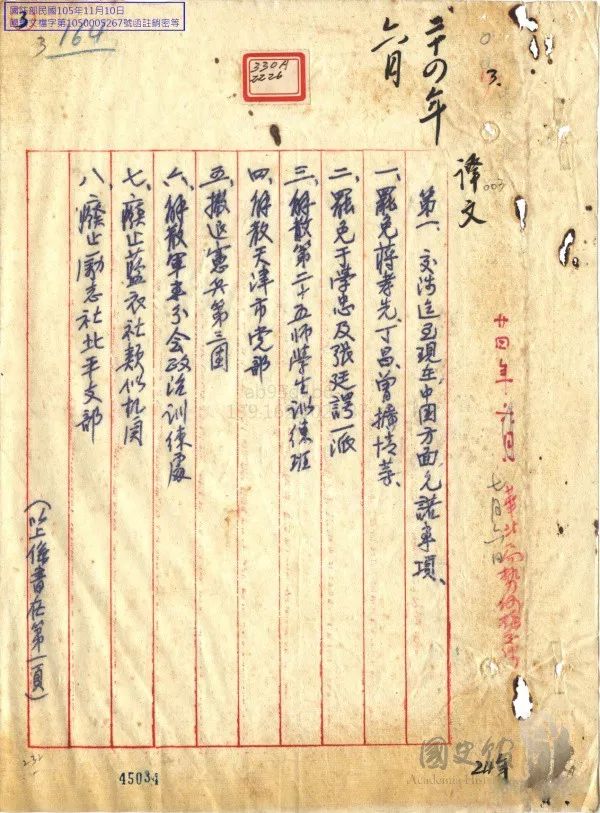 國防部民國105年11月10日
國防文檔字第1050005267號函註銷密等
3
3
164
330A
2226
二十四年
六月
3.
003
譯文
第一、交涉迄至現在中國方面允諾事項、
一、罷免蔣孝先丁昌曾擴情等、
二、罷免于学忠及張廷諤一派
三、解散第二十五師學生訓練班
四、解散天津市党部
五、撤退憲兵第三團
六、解散軍事分会政治訓練處
七、廢止藍衣社類似机関
八、廢止勵志社北平支部
(以上係書在第一頁)
廿四年 六月
七月六日
45034
國史館
Academia Historica
24年